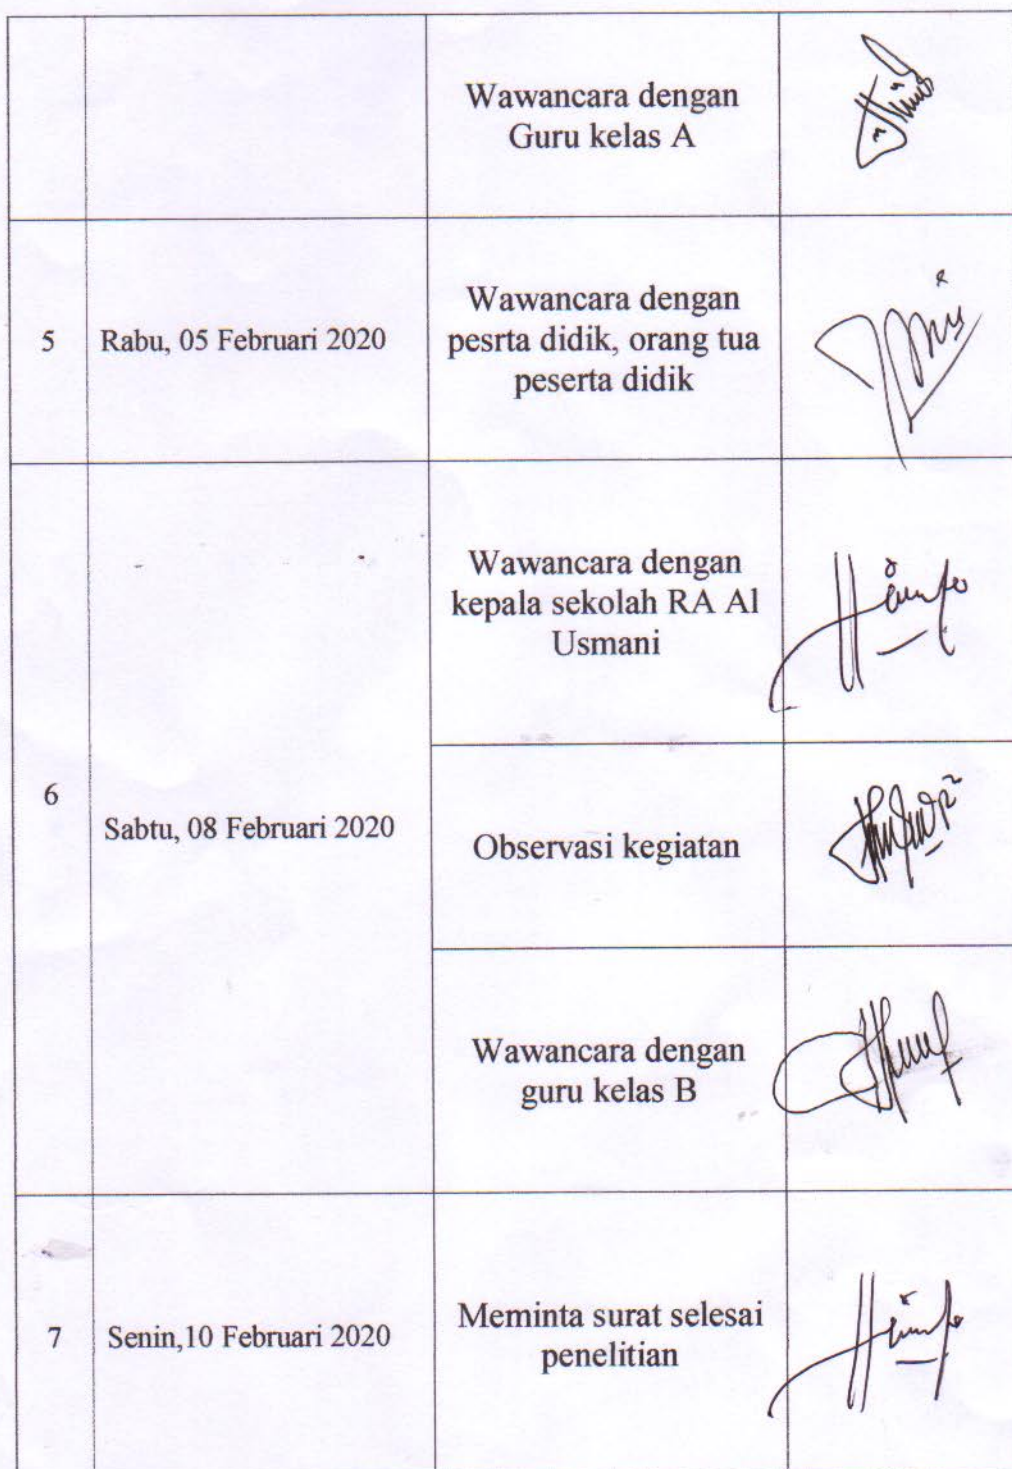 Wawancara dengan
Guru kelas A
5
Rabu, 05 Februari 2020
Wawancara dengan
pesrta didik, orang tua
peserta didik
6
Sabtu, 08 Februari 2020
Wawancara dengan
kepala sekolah RA Al
Usmani
Observasi kegiatan
Wawancara dengan
guru kelas B
7
Senin,10 Februari 2020
Meminta surat selesai
penelitian